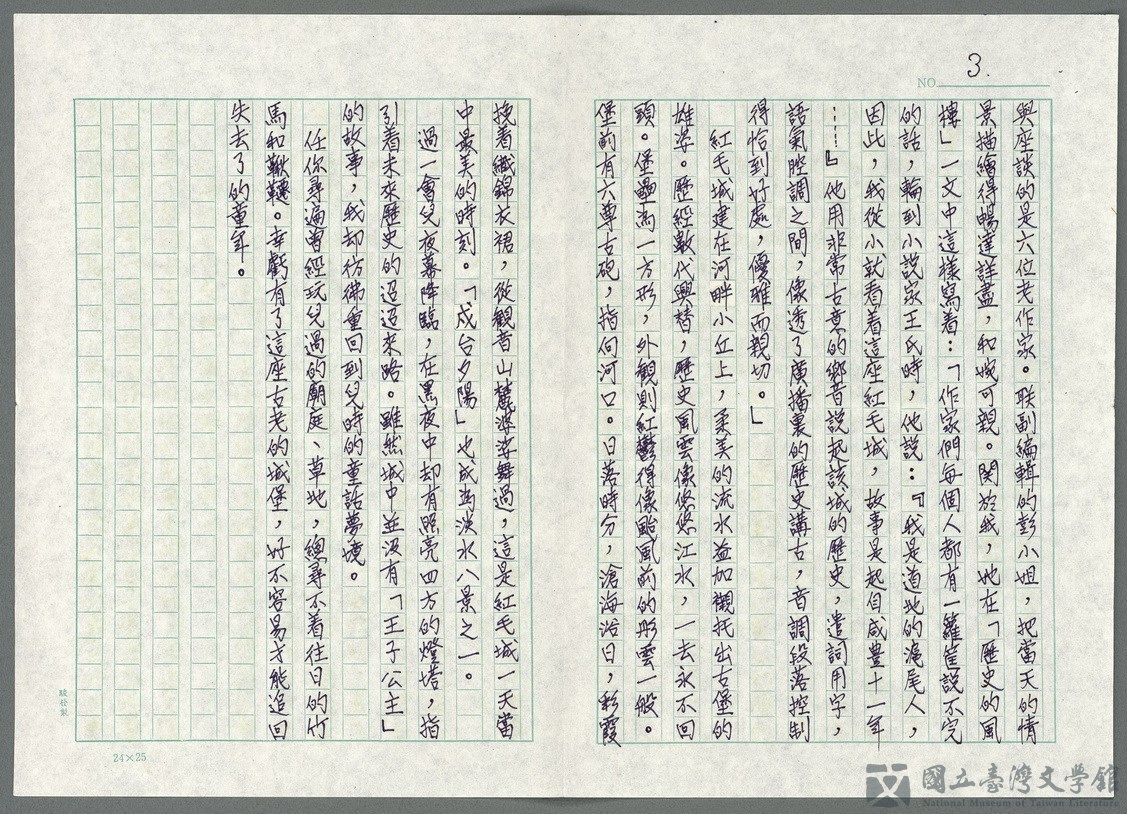 3.
NO.
與座談的是六位老作家。聯副編輯的彭小姐，把當天的情
景描繪得暢達詳盡，和婉可親。関於我，她在「歷史的風
樓」一文中這樣寫着：「作家們每個人都有一籮筐説不完
的話，輪到小説家王氏時，他説：『我是道地的滬尾人，
因此，我從小就看着這座紅毛城，故事是起自咸豊十一年
……』他用非常古意的鄉音説起該城的歷史，遣詞用字，
語氣腔調之間，像透了廣播裏的歷史講古，音調段落控制
得恰到好處，優雅而親切。」
紅毛城建在河畔小丘上，柔美的流水益加襯托出古堡的
雄姿。歷經數代興替，歷史風雲像悠悠江水，一去永不回
頭。堡壘為一方形，外觀則紅鬱得像颱風前的彤雲一般。
堡前有六尊古砲，指向河口。日落時分，滄海浴日，彩霞
挽着織錦衣裙，從観音山麓婆娑舞過，這是紅毛城一天當
中最美的時刻。「戍台夕陽」也成為淡水八景之一。
過一會兒夜幕降臨，在黑夜中却有照亮四方的燈塔，指
引着未來歷史的迢迢來路。雖然城中並没有「王子公主」
的故事，我却彷彿重回到兒時的童話夢境。
任你尋遍曾經玩兒過的廟庭、草地，總尋不着往日的竹
馬和鞦韆。幸虧有了這座古老的城堡，好不容易才能追回
失去了的童年。
駿發製
24×25
國立臺灣文學館
National Museum of Taiwan Literature